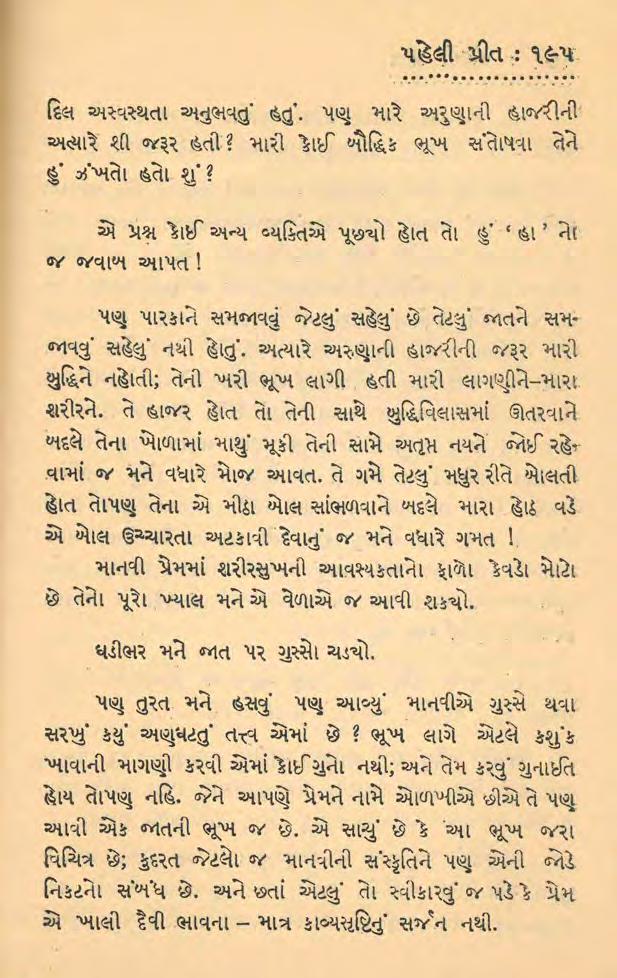 પહેલી પ્રીત : ૧૯૫
દિલ અસ્વસ્થતા અનુભવતું હતું. પણ મારે અરુણાની હાજરીની
અત્યારે શી જરૂર હતી? મારી કોઈ બૌદ્ધિક ભૂખ સંતોષવા તેને
હું ઝંખતો હતો શું?
એ પ્રશ્ન કોઈ અન્ય વ્યક્તિએ પૂછ્યો હોત તો હું ‘ હા ’ નો
જ જવાબ આપત !
પણ પારકાને સમજાવવું જેટલું સહેલું છે તેટલું જાતને સમ-
જાવવું સહેલું નથી હોતું. અત્યારે અરુણાની હાજરીની જરૂર મારી
બુદ્ધિને નહોતી; તેની ખરી ભૂખ લાગી હતી મારી લાગણીને–મારા
શરીરને. તે હાજર હોત તો તેની સાથે બુદ્ધિવિલાસમાં ઊતરવાને
બદલે તેના ખોળામાં માથું મૂકી તેની સામે અતૃપ્ત નયને જોઈ રહે-
વામાં જ મને વધારે મોજ આવત. તે ગમે તેટલું મધુર રીતે બોલતી
હોત તોપણ તેના એ મીઠા બોલ સાંભળવાને બદલે મારા હોઠ વડે
એ બોલ ઉચ્ચારતા અટકાવી દેવાનું જ મને વધારે ગમત !
માનવી પ્રેમમાં શરીરસુખની આવશ્યકતાનો ફાળો કેવડો મોટો
છે તેનો પૂરો ખ્યાલ મને એ વેળાએ જ આવી શક્યો.
ઘડીભર મને જાત પર ગુસ્સો ચડ્યો.
પણ તુરત મને હસવું પણ આવ્યું માનવીએ ગુસ્સે થવા
સરખું કયું અણઘટતું તત્ત્વ એમાં છે ? ભૂખ લાગે એટલે કશુંક
ખાવાની માગણી કરવી એમાં કોઈ ગુનો નથી; અને તેમ કરવું ગુનાઈત
હોય તોપણ નહિ. જેને આપણે પ્રેમને નામે ઓળખીએ છીએ તે પણ
આવી એક જાતની ભૂખ જ છે. એ સાચું છે કે આ ભૂખ જરા
વિચિત્ર છે; કુદરત જેટલો જ માનવીની સંસ્કૃતિને પણ એની જોડે
નિકટનો સંબંધ છે. અને છતાં એટલું તો સ્વીકારવું જ પડે કે પ્રેમ
એ ખાલી દૈવી ભાવના – માત્ર કાવ્યસૃષ્ટિનું સર્જન નથી.